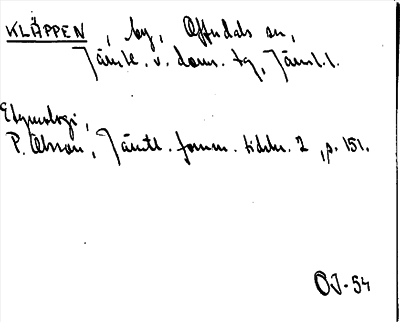 KLÄPPEN, by, Offerdals sn,
Jämtl. v. doms. tg, Jämtl. l.
Etymologi,
P. Olsson, Jämtl. fornm. tidskr. 2, p. 151.
OJ-54